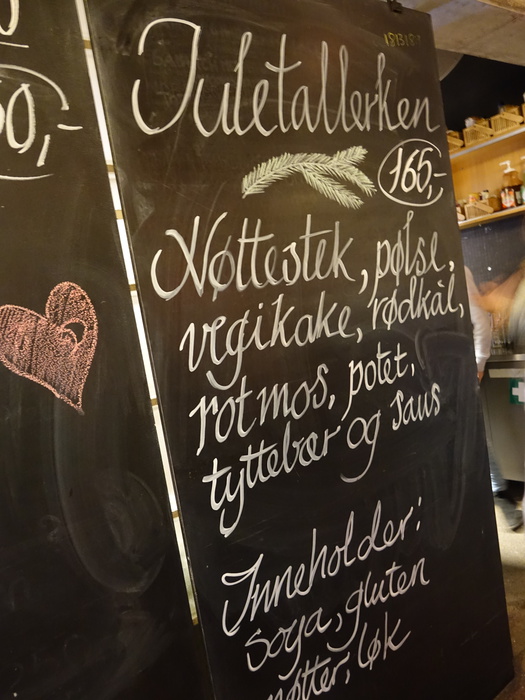 50,-
Juletallerken
165,-
Nøttestek, pølse,
vegikake, rødkål,
rotmos, potet,
tyttebær og saus
Inneholder:
soya, gluten
nøtter, løk